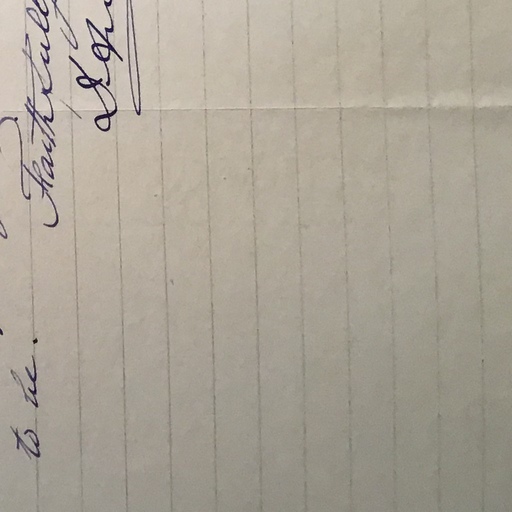 to be.
Faithfully